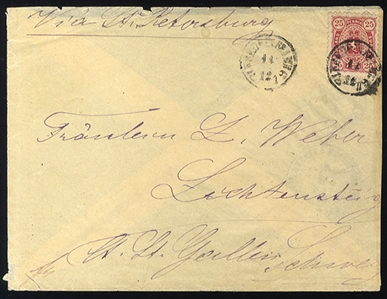 Via St. Petersburg
25 25
14
12
Fräulein L. Weber
Lichtensteig
Ct. St. Gallen
Schweiz